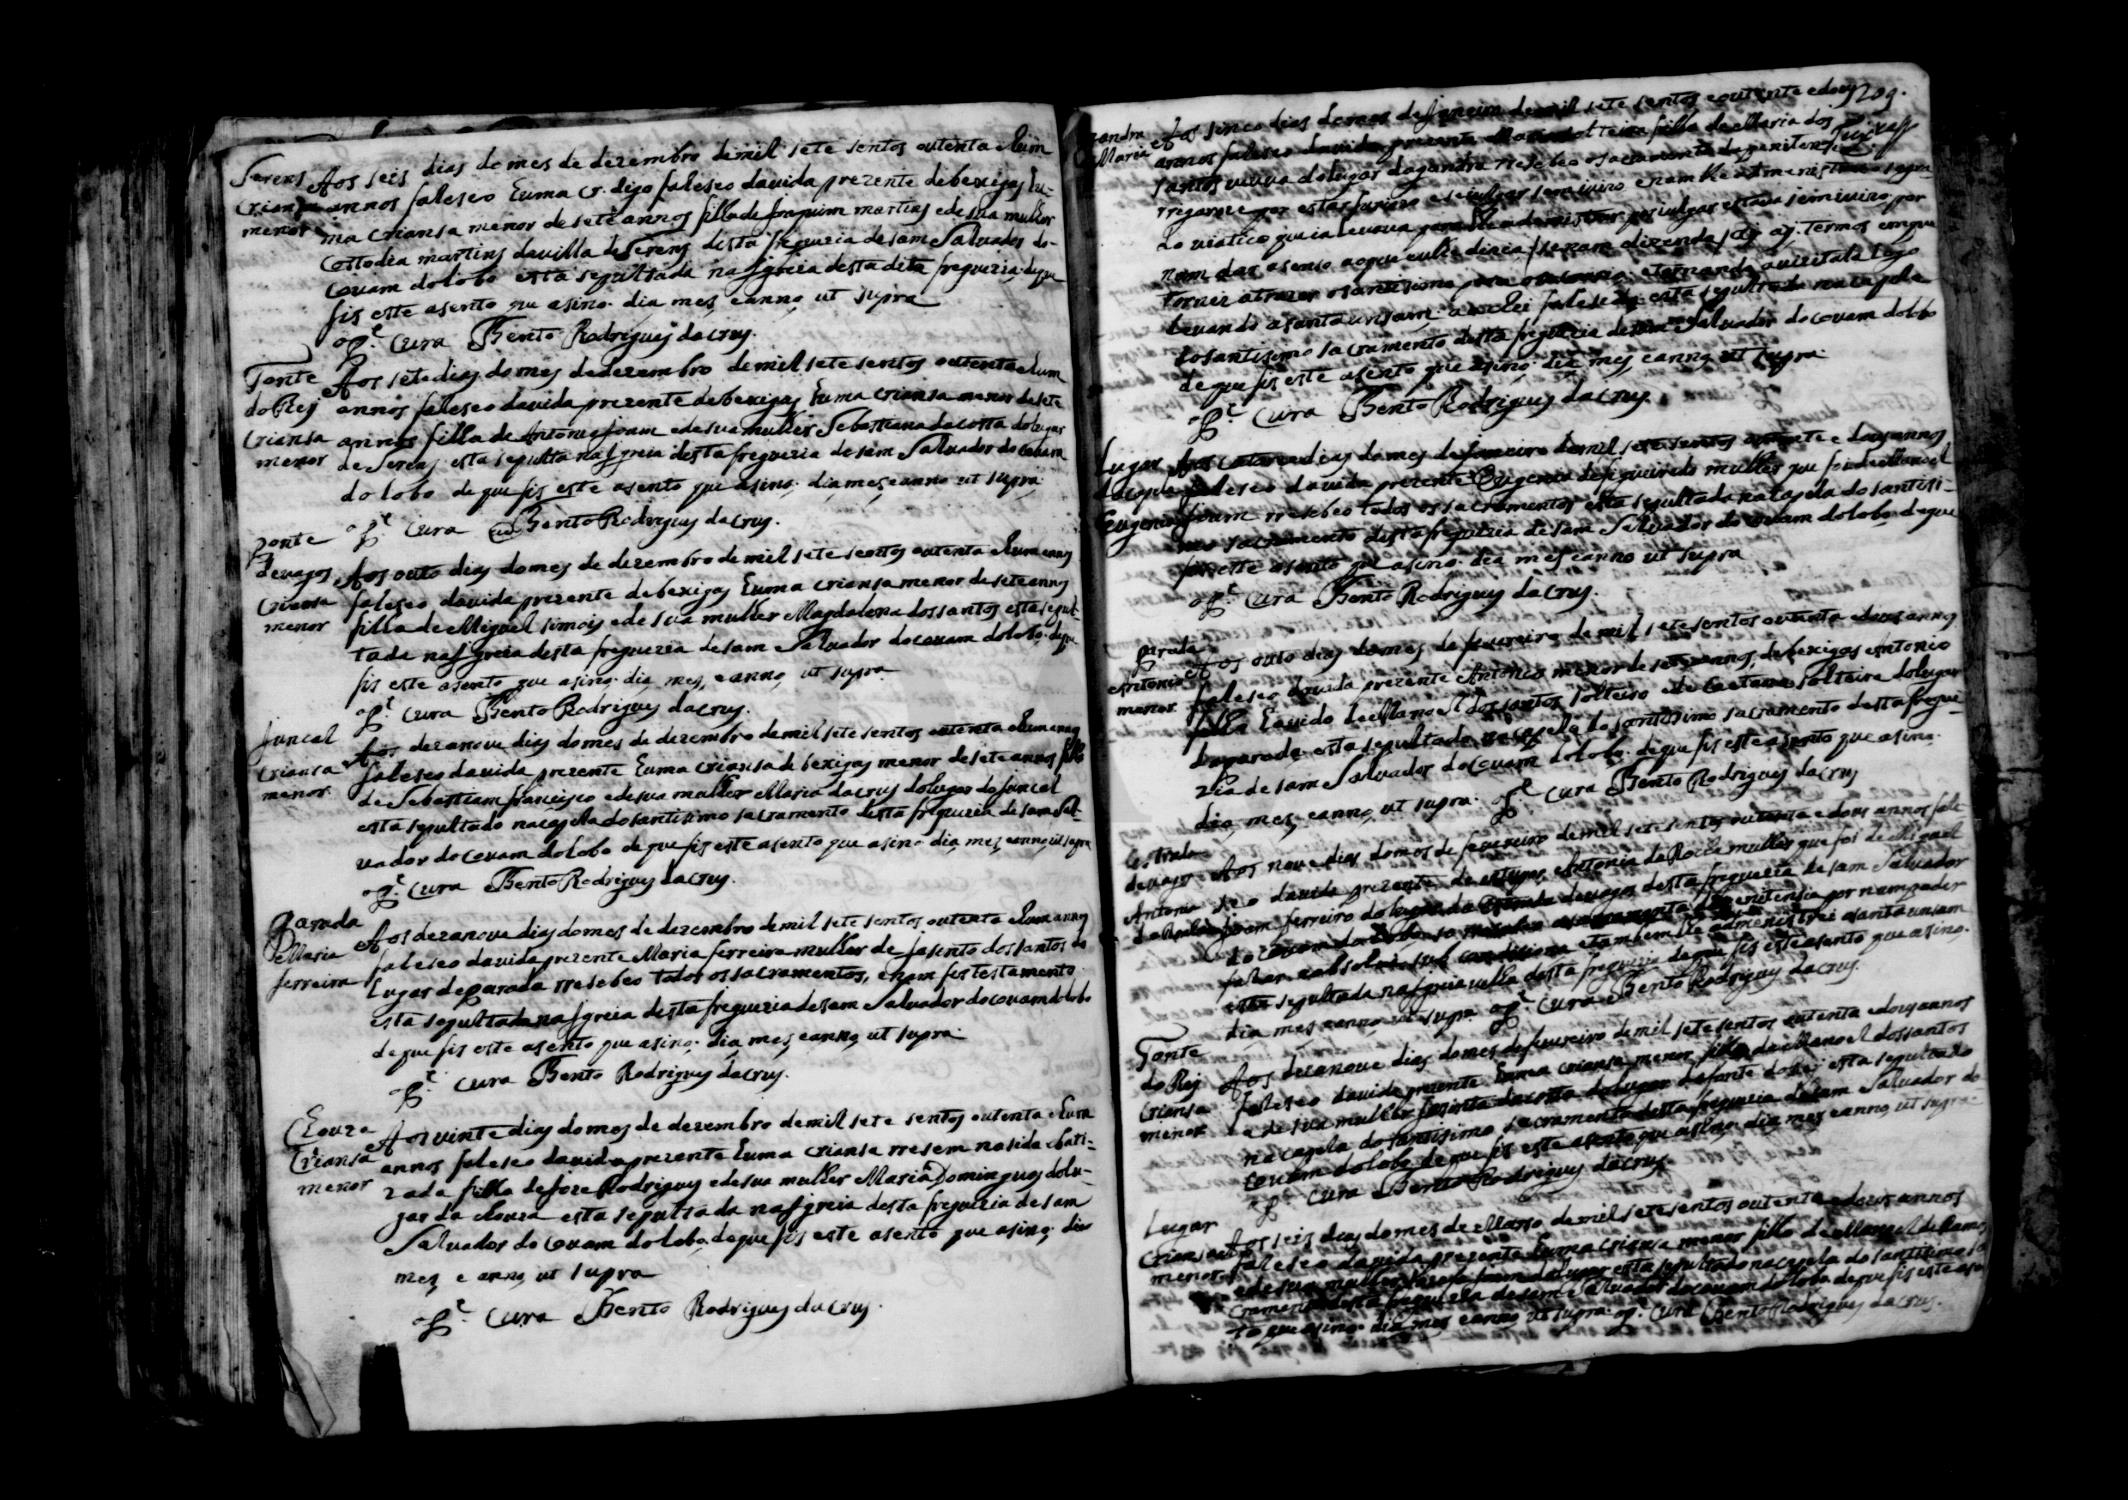 Serens
Criansa
menor
Aos seis dias do mes de dezembro de mil sete sentos outenta e hum
annos faleseo huma Cr. digo faleseo da vida prezente de bexigas hu-
ma criansa menor de sete annos filha de Joaquim martins e de sua mulher
Costodia martins da villa de Serens desta freguezia de sam Salvador do
Covam do lobo esta sepultada na Igreia desta dita freguezia de que
fis este asento que asino. dia mes, e anno, ut supra
o P.e Cura Bento Rodrigues da Crus.
Fonte
do Rej
Criansa
menor
Aos sete dias do mes de dezembro de mil sete sentos outenta e hum
annos faleseo da vida prezente de bexigas huma criansa menor de sete
annos filha de Antonio Joam e de sua mulher Sebastiana da Costa do lugar
de Serens esta sepulta na Igreia desta freguezia de sam Salvador do Covam
do lobo de que fis este asento que asino. dia mes e anno ut supra
o P.e Cura Bento Rodrigues da Crus.
ponte
de vagos
Criansa
menor
Aos outo dias do mes de dezembro de mil sete sentos outenta e hum annos
faleseo da vida prezente de bexigas huma criansa menor de sete annos
filha de Miguel simois e de sua mulher Magdalena dos santos esta sepul-
tada na Igreia desta freguezia de sam Salvador do Covam do lobo de que
fis este asento que asino. dia, mes, e anno, ut supra
o P.e Cura Bento Rodrigues da Crus.
Juncal
Criansa
menor
Aos dezanove dias do mes de dezembro de mil sete sentos outenta e hum annos
faleseo da vida prezente huma criansa de bexigas menor de sete annos filho
de Sebastiam francisco e de sua mulher Maria da Crus do lugar do Juncal
esta sepultado na capela do santisimo sacramento desta freguezia de sam Sal-
vador do Covam do lobo de que fis este asento que asino. dia, mes, e anno ut supra
o P.e Cura Bento Rodrigues da Crus.
Parada
Maria
ferreira
Aos dezanove dias do mes de dezembro de mil sete sentos outenta e hum annos
faleseo da vida prezente Maria ferreira mulher de Jasinto dos santos do
Lugar de parada rresebeo todos os sacramentos, e nam fis testamento
esta sepultada na Igreia desta freguezia de sam Salvador do Covam do lobo
de que fis este asento que asino. dia, mes, e anno, ut supra.
o P.e Cura Bento Rodrigues da Crus.
Louza
Criansa
menor
Aos vinte dias do mes de dezembro de mil sete sentos outenta e hum
annos faleseo da vida prezente huma criansa rresem nasida e bati-
zada filha de Joze Rodrigues e de sua mulher Maria Domingues do lu-
gar da Louza esta sepultada na Igreia desta freguezia de sam
Salvador do Covam do lobo de que fis este asento que asino. dia
mes, e anno, ut supra
o P.e Cura Bento Rodrigues da Crus.
209.
gandra
Maria
Aos sinco dias do mes de Janeiro de mil sete sentos e outenta e dous
annos faleseo da vida prezente Maria solteira filha de Maria dos
santos viuva do lugar da gandra rresebeo o sacramento da penitensia
do viatico que ia levava
nam dar asenso ao que eu lhe dizia
tornei a trazer o santisimo
Levando a santa unsam a achei falesida esta sepultada na capela
do santisimo sacramento desta freguezia de sam Salvador do Covam do lobo
de que fis este asento que asino. dia, mes, e anno, ut supra.
o P.e Cura Bento Rodrigues da Crus.
Lugar
da capela
Eugenia
Aos catorze dias do mes de Janeiro de mil sete sentos outenta e dous annos
faleseo da vida prezente Eugenia de figueiredo mulher que foi de Manoel
Joam rresebeo todos os sacramentos esta sepultada na capela do santisi-
mo sacramento desta freguezia de sam Salvador do Covam do lobo de que
fis este asento que asino. dia mes e anno ut supra
o P.e Cura Bento Rodrigues da Crus.
parada
Antonio
menor
Aos outo dias do mes de fevereiro de mil sete sentos outenta e dous annos
faleseo da vida prezente Antonio menor de sete annos, de bexigas Antonio
filho havido de Manoel dos santos solteiro e de Caetana solteira do lugar
da parada esta sepultado na capela do santisimo sacramento desta fregue-
zia de sam Salvador do Covam do lobo. de que fis este asento que asino.
dia, mes, e anno, ut supra. o P.e Cura Bento Rodrigues da Crus
Estrada
de vagos
Antonia
da Rocha
Aos nove dias do mes de fevereiro de mil sete sentos outenta e dous annos fale-
seo da vida prezente de estupor Antonia da Rocha mulher que foi de Miguel
Joam ferreiro do lugar da Estrada de vagos desta freguezia de sam Salvador
do Covam do lobo penitensia por nam poder
falar e absolvi sub condisione e tambem lhe administrei a santa unsam
esta sepultada na Igreia velha desta freguezia de que fis este asento que asino.
dia, mes, e anno, ut supra o P.e Cura Bento Rodrigues da Crus.
Fonte
do Rej
Criansa
menor
Aos dezanove dias do mes de fevereiro de mil sete sentos outenta e dous annos
faleseo da vida prezente huma criansa menor filho de Manoel dos santos
e de sua mulher Jasinta da Costa do lugar da fonte do Rej esta sepultado
na capela do santisimo sacramento desta freguezia de sam Salvador do
Covam do lobo de que fis este asento que asino. dia mes e anno ut supra.
o P.e Cura Bento Rodrigues da Crus.
Lugar
Criansa
menor
Aos seis dias do mes de Marso de mil sete sentos outenta e dous annos
faleseo da vida prezente huma criansa menor filho de Manoel
e de sua mulher do lugar esta sepultado na capela do santisimo sa-
cramento desta freguezia de sam Salvador do Covam do lobo de que fis este asen-
to que asino. dia mes e anno ut supra. o P.e Cura Bento Rodrigues da Crus.